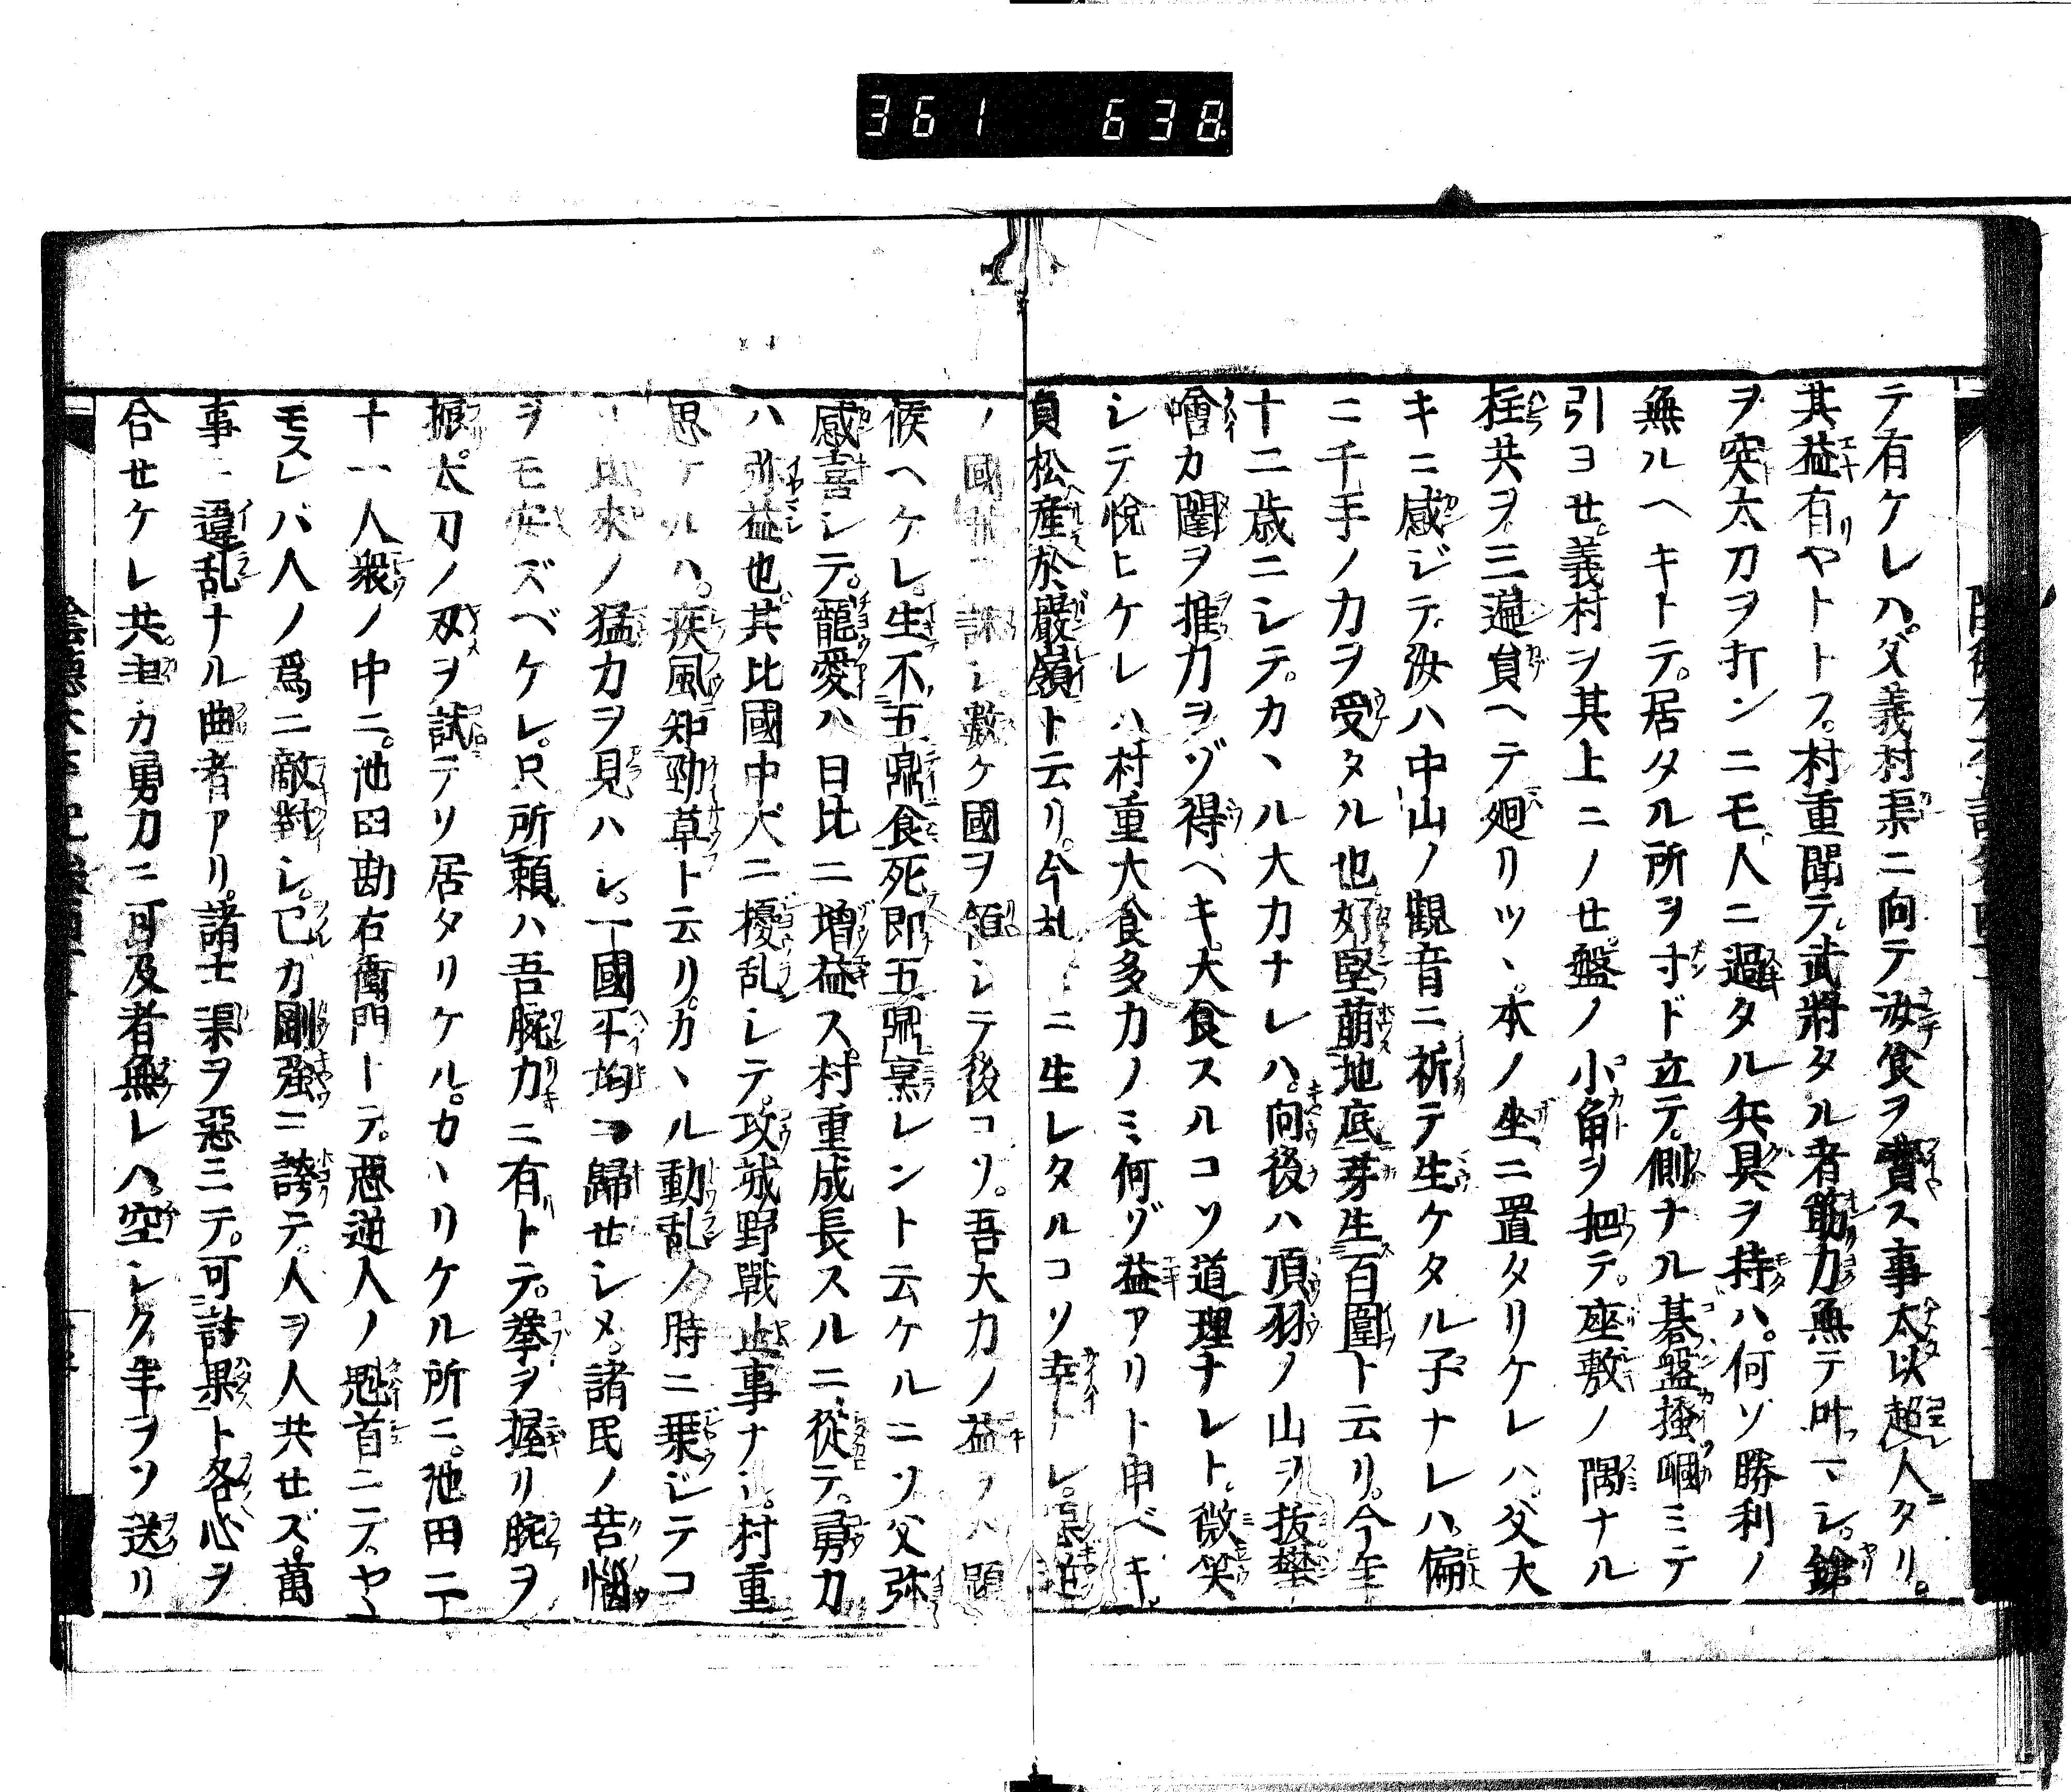 361 638
テ有ケレハ。父義村渠ニ向テ汝食ヲ費ス事太以超人タリ。
其益有ヤトトフ。村重聞テ武將タル者筋力無テ叶マシ。鎗
ヲ突太刀ヲ打ンニモ人ニ過タル兵具ヲ持ハ。何ソ勝利ノ
無ルヘキトテ。居タル所ヲ寸ド立テ。側ナル碁盤掻ミテ
引ヨせ。義村ヲ其上ニノせ。盤ノ小角ヲ把テ。座敷ノ隅ナル
柱共ヲ三遍負ヘテ廻リツヽ。本ノ坐ニ置タリケレハ。父大
キニ感ジテ。汝ハ中山ノ觀音ニ祈テ生ケタル子ナレハ。偏
ニ千手ノ力ヲ受タル也。好堅萠地底芽生百圍ト云リ。今年
十二歳ニシテ。カヽル大力ナレハ。向後ハ頂羽ノ山ヲ抜樊
噲カ閣ヲ推力ヲゾ得ヘキ。大食スルコソ道理ナレト。微笑
シテ悦ヒケレハ村重大食多力ノミ何ゾ益アリト申ベキ。
貞松産於巖嶺ト云リ。今乱ニ生レタルコソ幸トレ。
ノ國ニ誅シ。數ケ國ヲ領シテ後コソ。吾大力ノ益ヲハ顕
候ヘケレ。生不五鼎食死即五鼎烹レント云ケルニソ父弥
感喜シテ。寵愛ハ日比ニ増益ス。村重成長スルニ從テ。勇力
ハ弥益也。其比國中大ニ擾乱シテ。攻城野戰止事ナシ。村重
思ケルハ。疾風知勁草ト云リ。カヽル動乱ノ時ニ乗ジテコ
比來ノ猛力ヲ見ハシ。一國平均ニ歸せシメ。諸民ノ苦惱
ヲモ安ズベケレ。只所頼ハ吾腕力ニ有トテ。拳ヲ握リ腕ヲ
振。太刀ノ刄ヲ試テソ居タリケル。カヽリケル所ニ。池田二
十一人衆ノ中ニ。池田勘右衞門トテ。惡逆人ノ魁首ニテ。ヤヽ
モスレバ人ノ爲ニ敵對シ。已ガ剛強ニ誇テ。人ヲ人共せズ。萬
事ニ違乱ナル曲者アリ。諸士渠ヲ惡ミテ。可討果ト各心ヲ
合せケレ共。カ勇力ニ可及者無レハ。空シク年ヲソ送リ